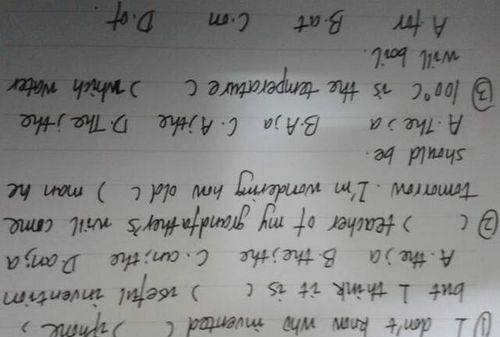 ① I don't know who invented ( ) iphone,
but I think it is ( ) useful invention
A. the; a B. the; the C. an; the D. an; a
② ( ) teacher of my grandfather's will come
tomorrow. I'm wondering how old ( ) man he
should be.
A. The; a B. A; a C. A; the D. The; the
③ 100°C is the temperature ( ) which water
will boil.
A. for B. at C. on D. of